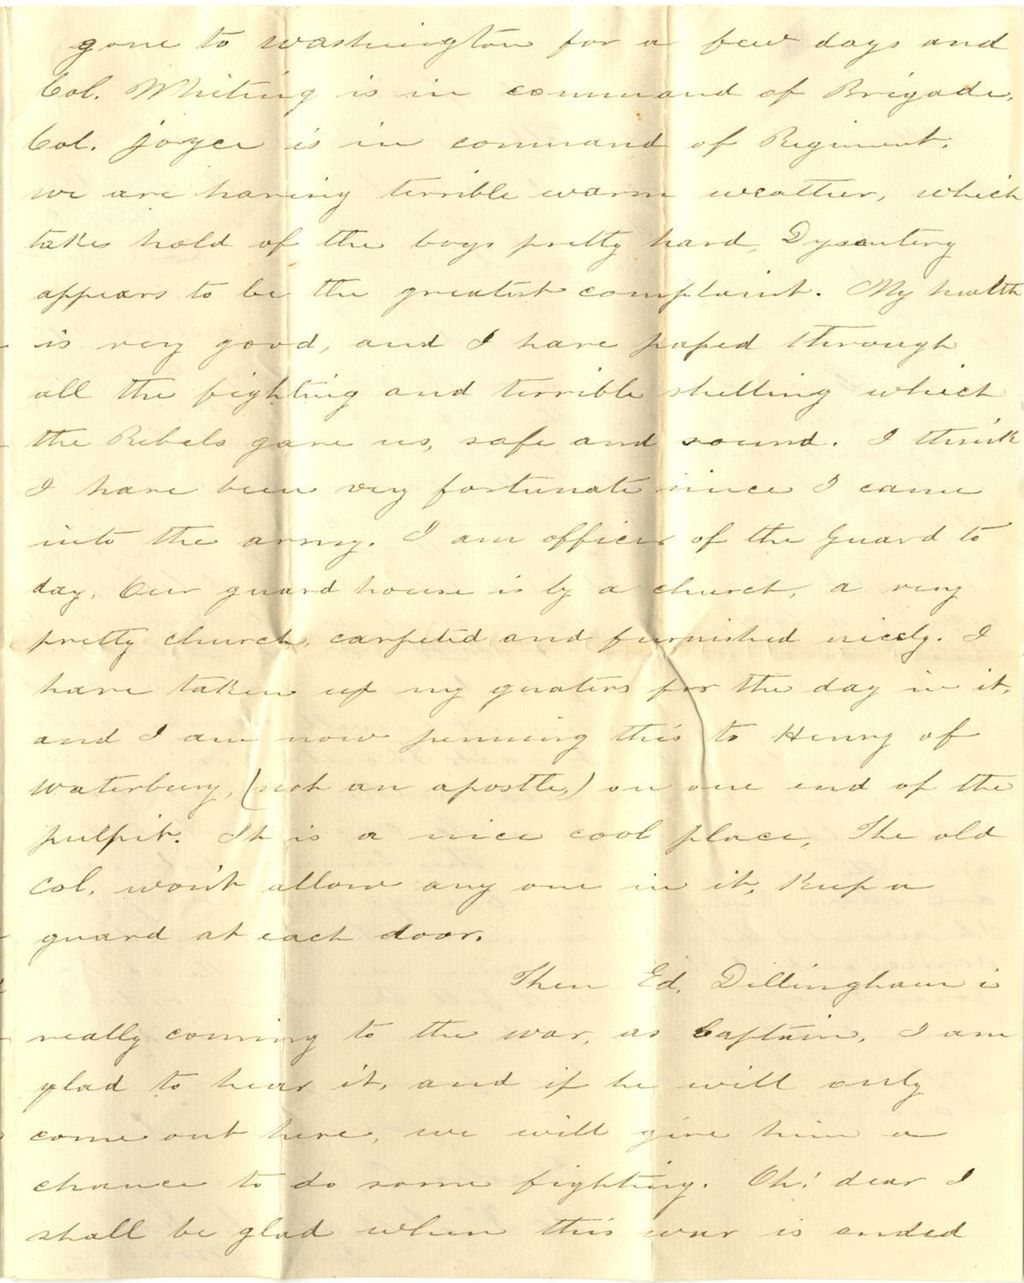 gone to washington for a few days and
Col. Whiting is in command of Brigade,
Col. Joyce is in command of Regiment.
we are having terrible warm weather, which
takes hold of the boys pretty hard, Dysentery
appears to be the greatest complaint. My health
is very good, and I have passed through
all the fighting and terrible shelling which
the Rebels gave us, safe and sound. I think
I have been very fortunate since I came
into the army. I am officer of the Guard to
day, Our guard house is by a church, a very
pretty church, carpeted and furnished nicely. I
have taken up my quaters for the day in it,
and I am now penning this to Henry of
Waterbury, (not an apostle,) on one end of the
pulpit. It is a nice cool place, The old
Col. won't allow any one in it, Keep a
guard at each door.
Then Ed. Dillingham is
really coming to the war, as Captain, I am
glad to hear it, and if he will only
come out here, we will give him a
chance to do some fighting. Oh! dear I
shall be glad when this war is ended